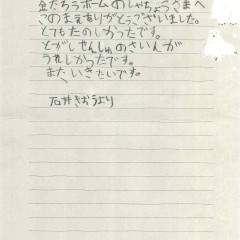 友だちホームのしゃちょうさまへ
このまえありがとうございました。
とてもたのしかったです。
とがしせんしゅのさいんが
うれしかったです。
また、いきたいです。
石井きおうより